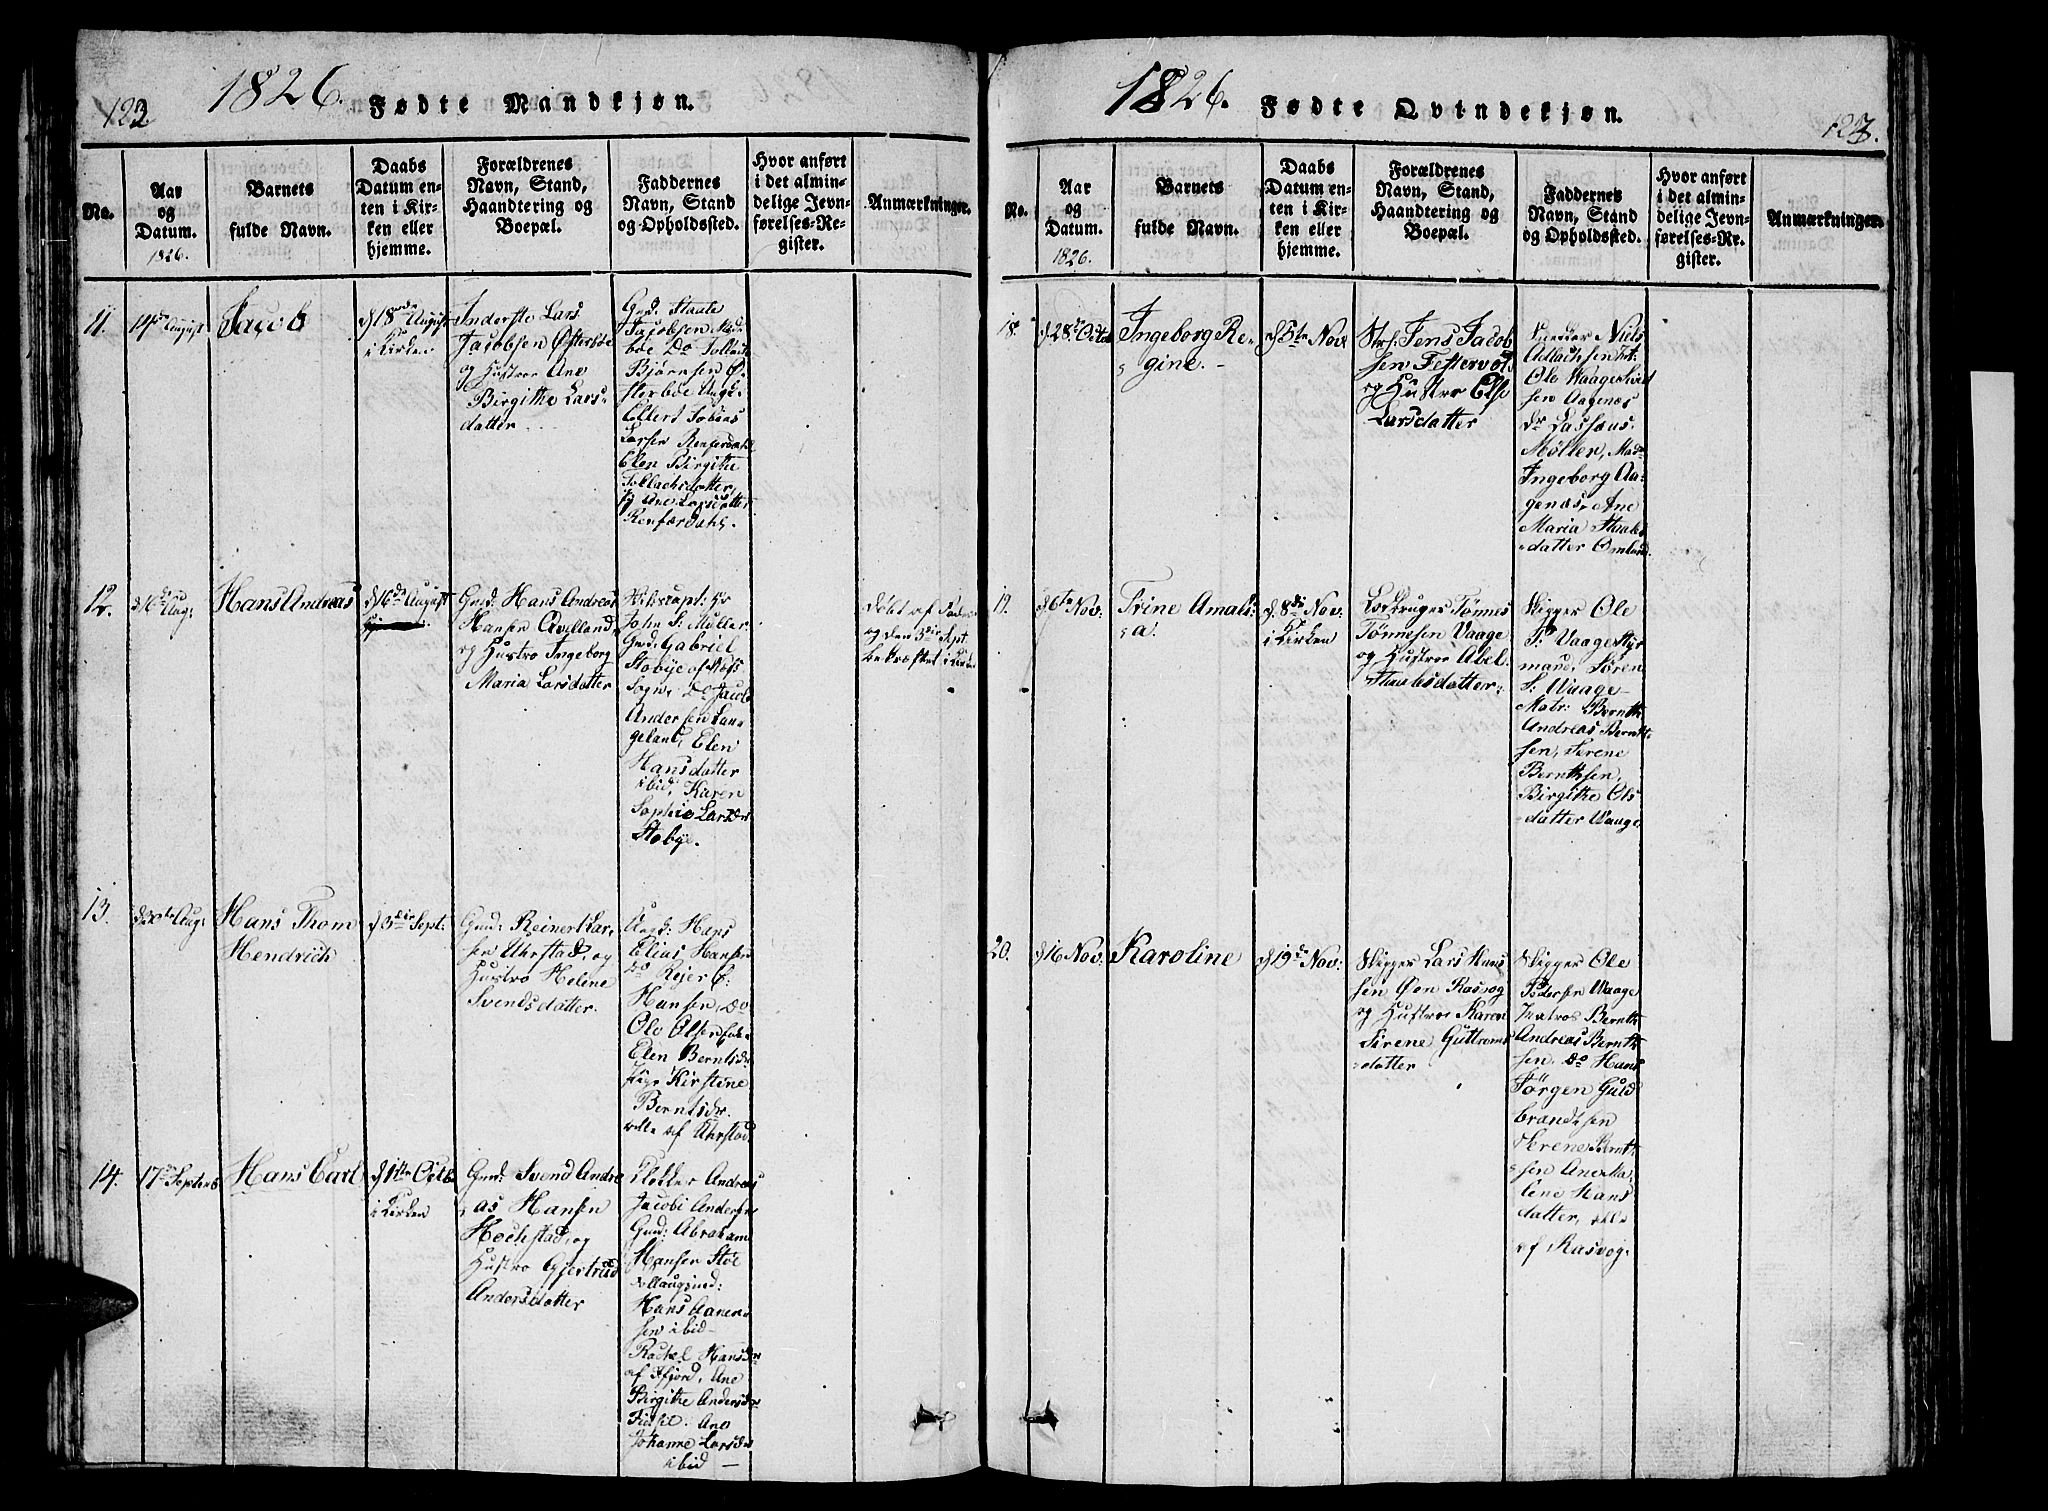 1826. Fødte Mandkjøn.
No.
Aar
og
Datum.
1826.
Barnets
fulde Navn.
Daabs
Datum en-
ten i Kir-
ken eller
hjemme.
Forældrenes
Navn, Stand,
Haandtering og
Boepæl.
Faddernes
Navn, Stand
og Opholdssted.
Hvor anført
i det almin-
delige Jevn-
førelses-Re-
gister.
Anmærkninger.
11.
August
Jacob
d 18de August
i Kirken
Inderste Lars
Jacobsen Østerbøe
og Hustroe Ane
Birgithe Lars-
datter
Gmd. Staale
Jacobsen
Do
Bjørnsen Ø-
sterboe
Ellert Tobias
Larsen
Elen Birgithe
Tollachsdatter,
Ane Larsdatter
12.
d 16de Aug:
Hans Andreas
d 16de August
Gmd: Hans Andreas
Hansen Qvilland,
og Hustro Ingeborg
Maria Larsdatter
John S: Møller
Gmd: Gabriel
Stobye af
Sogn, Do Jacob
Andersen Lan-
geland, Elen
Hansdatter
ibid, Karen
Sophie Larsdr
Stobye.
og den 3die Sept.
bekræftet i Kirken
13.
d 30te Aug:
Hans Thom
Hendrich
d 3die Sept:
Gmd: Reinert Lar-
sen Uhrstad, og
Hustro Helene
Svendsdatter.
Ungd: Hans
Elias Hansen
do Rejer
Hansen, do
Ole Olsen
Elen Berntsdr
Pige Kirstine
Berntsdr.
alle af Uhrstad.
14.
17de Septemb
Hans Carl
d 1ste Octb
i Kirken
Gmd: Svend Andre
as Hansen
Hochstad, og
Hustro Gjertrud
Andersdatter
Klokker Andreas
Jacobi Andersen
Gmd: Abraham
Hansen Stoe
Hans Aanen-
sen ibid-
Rachel Hansdr
af Ffjord, Ane
Birgithe Andersdr
Fidsel. Ane
Johanne Larsdr
ibid -
1826. Fødte Qvindekjøn.
123.
No.
Aar
og
Datum.
1826.
Barnets
fulde Navn.
Daabs
Datum en-
ten i Kir-
ken eller
hjemme.
Forældrenes
Navn, Stand,
Haandtering og
Boepæl.
Faddernes
Navn, Stand
og Opholdssted.
Hvor anført
i det almin-
delige Jevn-
førelses-Re-
gister.
Anmærkninger.
18.
d 28de Octob
Ingeborg Re-
gine. -
d 5te Nov
Jens Jacob
sen
og Hustro Else
Larsdatter
Niels
Ole Waage
sen Aagenæs
Møller, Mad.
Ingeborg Aa-
genæs, Ane
Maria Staales
datter Omland.
19.
d 6te Nov:
Trine Amali:
a.
d. 8de Nov:
i Kirken
Tønnes
Tønnesen Vaage
og Hustroe Abel
Staalesdatter.
Skipper Ole
P: Vaage Styr
mand, Søren
S: Waage
Matr: Bernth
Andreas Bernth
sen, Serene
Bernthsen,
Birgithe Ols
datter Waage
20.
d 16 Nov:
Karoline
d 19de Nov:
Skipper Lars Hans
sen Øen Rasvog
og Hustroe Karen
Sirene Guttroms
datter
Skipper Ole
Pedersen Waage
Matros Bernth
Andreas Bernth
sen. do Hans
Jørgen Guld
brandtsen
Serene Bernth
sen Ane Ma-
lene Hans
datter, alle
af Rasvog.